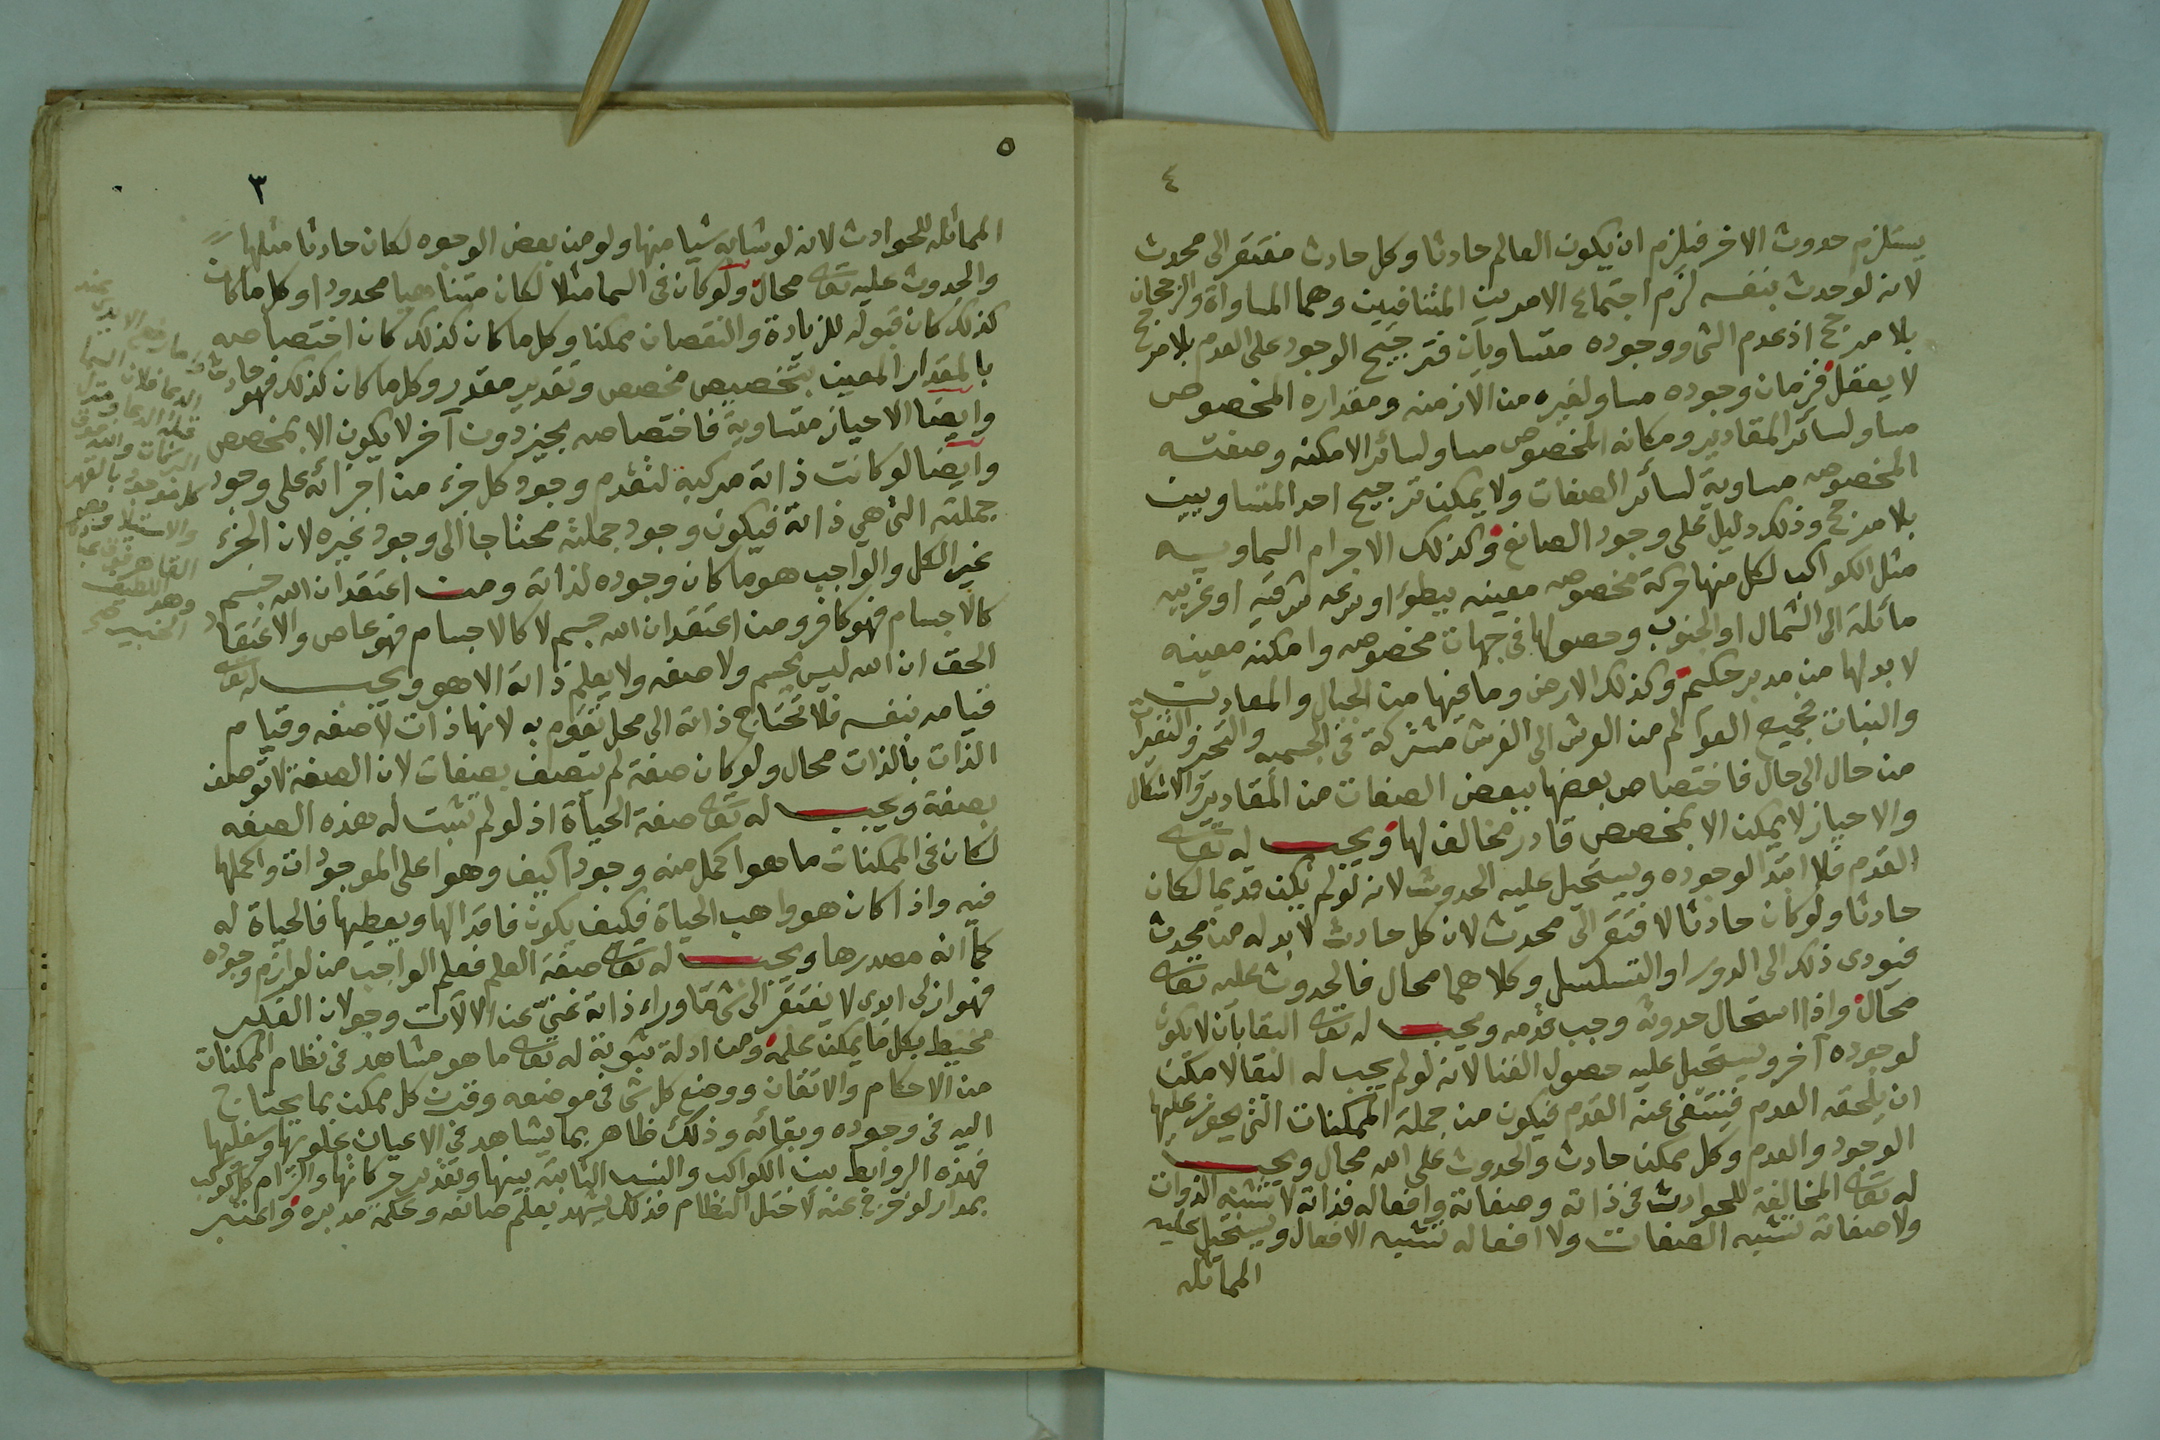 ٤
يستلزم حدوث الاخر فيلزم ان يكون العالم حادثا وكل حادث مفتقر الى محدث
لانه لو حدث بنفسه لزم اجتماع الامرين المتنافيين وهما المساواة والرجحان
بلا مرجح اذ عدم الشي ووجوده متساويان فترجيح الوجود على العدم بلا مرجح
لا يعقل فزمان وجوده مساو لغيره من الازمنه ومقداره المخصوص
مساو لسائر المقادير ومكانه المخصوص مساو لسائر الامكنه وصفته
المخصوصه مساوية لسائر الصفات ولا يمكن ترجيح احد المتساويين
بلا مرجح وذلك دليل على وجود الصانع وكذلك الاجرام السماويه
مثل الكواكب لكل منها حركة مخصوصه معينه ببطؤ او سرعه شرقيه او غربيه
مائلة الى الشمال او الجنوب وحصولها في جهات مخصوصه وامكنه معينه
لا بد لها من مدبر حكيم وكذلك الارض وما فيها من الجبال والمعادن
والنبات فجميع العوالم من العرش الى الفرش مشتركة في الجسميه والتحيز والتغيرات
من حال الى حال فاختصاص بعضها ببعض الصفات من المقادير والاشكال
والاحياز لا يمكن الا بمخصص قادر مخالف لها ويجب له تعالى
القدم فلا ابتدا لوجوده ويستحيل عليه الحدوث لانه لو لم يكن قديما لكان
حادثا ولو كان حادثا لافتقر الى محدث لان كل حادث لا بد له من محدث
فيودى ذلك الى الدور او التسلسل وكلاهما محال فالحدوث عليه تعالى
محال واذا استحال حدوثه وجب قدمه ويجب له تعالى البقا بان لا يكون
لوجوده آخر ويستحيل عليه حصول الفنا لانه لو لم يجب له البقا لامكن
ان يلحقه العدم فينتفى عنه القدم فيكون من جملة الممكنات التي يجوز عليها
الوجود والعدم وكل ممكن حادث والحدوث على الله محال ويجب
له تعالى المخالفة للحوادث في ذاته وصفاته وافعاله فذاته لا تشبه الذوات
ولا صفاته تشبه الصفات ولا افعاله تشبه الافعال ويستحيل عليه
المماثله
٥
٣
المماثله للحوادث لانه لو شابه شيا منها ولو من بعض الوجوه لكان حادثا مثلها
والحدوث عليه تعالى محال ولو كان في السما مثلا لكان متناهيا محدودا وكل ما كان
كذلك كان قبوله للزيادة والنقصان ممكنا وكل ما كان كذلك كان اختصاصه
بالمقدار المعين بتخصيص مخصص وتقدير مقدر وكل ما كان كذلك فهو حادث
وايضا الاحياز متساوية فاختصاصه بحيز دون آخر لا يكون الا بمخصص
وايضا لو كانت ذاته مركبة لتقدم وجود كل جزء من اجزائه على وجود
جملته التي هي ذاته فيكون وجود جملته محتاجا الى وجود غيره لان الجزء
غير الكل والواجب هو ما كان وجوده لذاته ومن اعتقد ان الله جسم
كالاجسام فهو كافر ومن اعتقد ان الله جسم لا كالاجسام فهو عاص والاعتقاد
الحق ان الله ليس بجسم ولا صفه ولا يعلم ذاته الا هو ويجب له تعالى
قيامه بنفسه فلا تحتاج ذاته الى محل تقوم به لانها ذات لا صفه وقيام
الذات بالذات محال ولو كان صفة لم يتصف بصفات لان الصفة لا توصف
بصفة ويجب له تعالى صفة الحياة اذ لو لم تثبت له هذه الصفه
لكان في الممكنات ما هو اكمل منه وجودا كيف وهو اعلى الموجودات واكملها
فيه واذا كان هو واهب الحياة فكيف يكون فاقدا لها ويعطيها فالحياة له
كما انه مصدرها ويجب له تعالى صفة العلم فعلم الواجب من لوازم وجوده
فهو ازلى ابدى لا يفتقر الى شى ما وراء ذاته غنى عن الالآت وجولان الفكر
محيط بكل ما يمكن علمه ومن ادلة ثبوته له تعالى ما هو مشاهد في نظام الممكنات
من الاحكام والاتقان ووضع كل شى في موضعه وقرن كل ممكن بما يحتاج
اليه في وجوده وبقائه وذلك ظاهر بما يشاهد في الاعيان علويها وسفليها
فهذه الروابط بين الكواكب والنسب الثابتة بينها وتقدير حركاتها والزام كل كوكب
بمدار لو خرج عنه لاختل النظام فذلك يشهد بعلم صانعه وحكمة مدبره واعتبر
رفع الايدى عند
الدعا فلان السما
قبلة الدعا
والله
بالقهر
والاستيلا وهو
القاهر فوق عباده
وهو اللطيف
الخبير